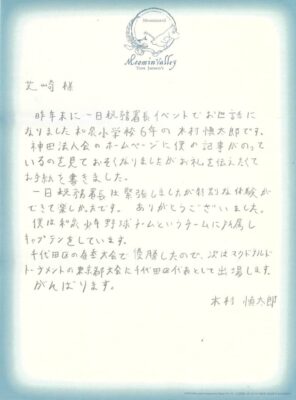 Moominvalley
Tove Jansson's
芝崎 様
昨年末に一日税務署長イベントでお世話に
なりました和泉小学校6年の木村慎太郎です。
神田法人会のホームページに僕の記事がのって
いるのを見ておそくなりましたがお礼を伝えたくて
お手紙を書きました。
一日税務署長は緊張しましたが特別な体験が
できて楽しかったです。ありがとうございました。
僕は和泉少年野球チームというチームに所属し
キャプテンをしています。
千代田区の春季大会で優勝したので、次はマクドナルド
トーナメントの東京都大会に千代田区代表として出場します。
がんばります。
木村 慎太郎